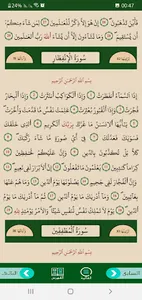 00:47
24%
فَأَيْنَ تَذْهَبُونَ ٢٦ إِنْ هُوَ إِلَّا ذِكْرٌ لِّلْعَٰلَمِينَ ٢٧ لِمَن شَآءَ مِنكُمْ
أَن يَسْتَقِيمَ ٢٨ وَمَا تَشَآءُونَ إِلَّآ أَن يَشَآءَ ٱللَّهُ رَبُّ ٱلْعَٰلَمِينَ ٢٩
سُورَةُ الِانْفِطَارِ
بِسْمِ ٱللَّهِ ٱلرَّحْمَٰنِ ٱلرَّحِيمِ
إِذَا ٱلسَّمَآءُ ٱنفَطَرَتْ ١ وَإِذَا ٱلْكَوَاكِبُ ٱنتَثَرَتْ ٢ وَإِذَا ٱلْبِحَارُ
فُجِّرَتْ ٣ وَإِذَا ٱلْقُبُورُ بُعْثِرَتْ ٤ عَلِمَتْ نَفْسٌ مَّا قَدَّمَتْ وَأَخَّرَتْ ٥
يَٰٓأَيُّهَا ٱلْإِنسَٰنُ مَا غَرَّكَ بِرَبِّكَ ٱلْكَرِيمِ ٦ ٱلَّذِى خَلَقَكَ
فَسَوَّىٰكَ فَعَدَلَكَ ٧ فِىٓ أَىِّ صُورَةٍ مَّا شَآءَ رَكَّبَكَ ٨ كَلَّا
بَلْ تُكَذِّبُونَ بِٱلدِّينِ ٩ وَإِنَّ عَلَيْكُمْ لَحَٰفِظِينَ ١٠ كِرَامًا كَٰتِبِينَ ١١
يَعْلَمُونَ مَا تَفْعَلُونَ ١٢ إِنَّ ٱلْأَبْرَارَ لَفِى نَعِيمٍ ١٣ وَإِنَّ ٱلْفُجَّارَ
لَفِى جَحِيمٍ ١٤ يَصْلَوْنَهَا يَوْمَ ٱلدِّينِ ١٥ وَمَا هُمْ عَنْهَا بِغَآئِبِينَ ١٦
وَمَآ أَدْرَىٰكَ مَا يَوْمُ ٱلدِّينِ ١٧ ثُمَّ مَآ أَدْرَىٰكَ مَا يَوْمُ ٱلدِّينِ ١٨
يَوْمَ لَا تَمْلِكُ نَفْسٌ لِّنَفْسٍ شَيْـًٔا وَٱلْأَمْرُ يَوْمَئِذٍ لِّلَّهِ ١٩
سُورَةُ الْمُطَفِّفِينَ
بِسْمِ ٱللَّهِ ٱلرَّحْمَٰنِ ٱلرَّحِيمِ
السابق
الفهرس